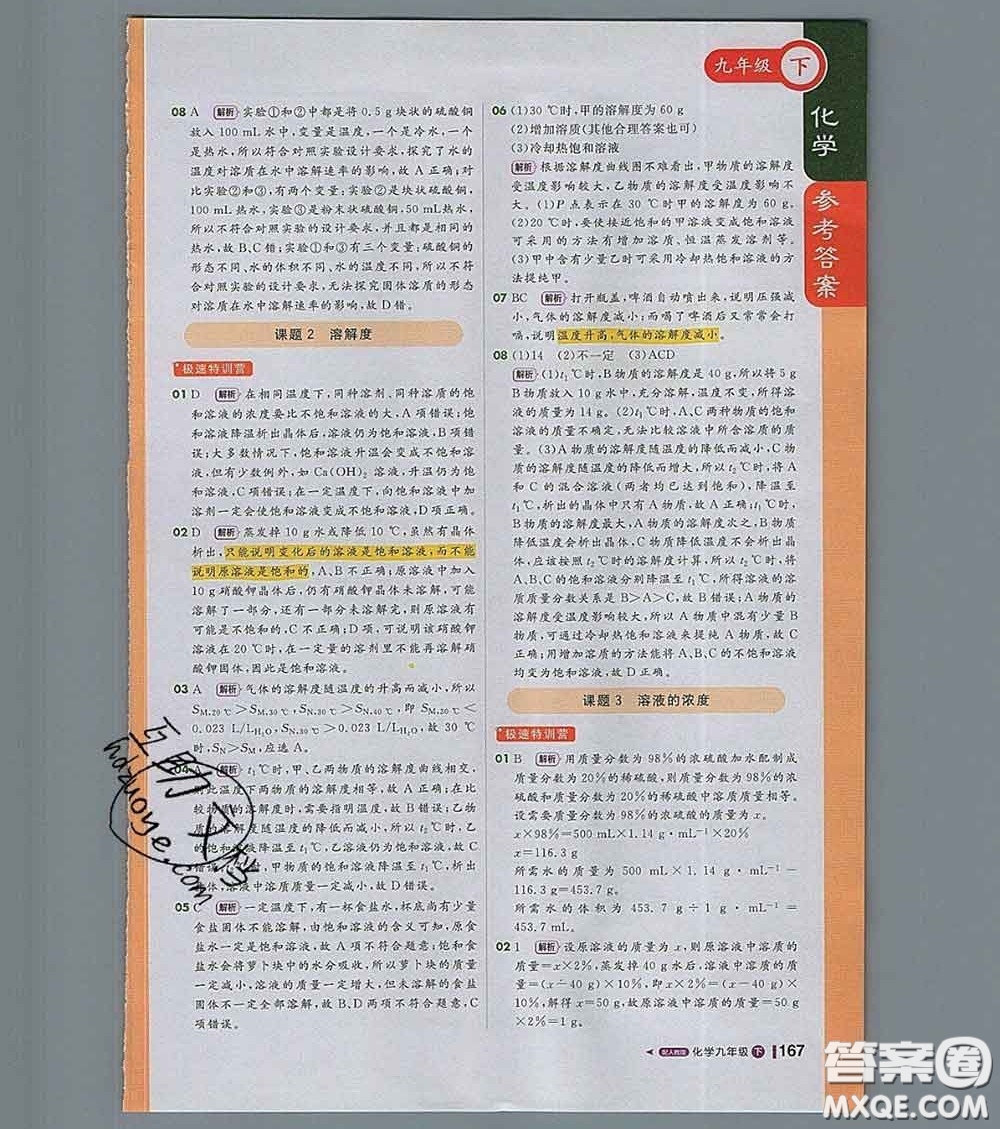 九年级 下
化学
参考答案
08 A 解析 实验①和②中都是将 0.5 g 块状的硫酸铜
放入 100 mL 水中,变量是温度,一个是冷水,一个
是热水,所以符合对照实验设计要求,探究了水的
温度对溶质在水中溶解速率的影响,故 A 正确;对
比实验②和③,有两个变量:实验②是块状硫酸铜,
100 mL 热水,实验③是粉末状硫酸铜,50 mL 热水,
所以不符合对照实验的设计要求,并且都是相同的
热水,故 B、C 错;实验①和③有三个变量:硫酸铜的
形态不同、水的体积不同、水的温度不同,所以不符
合对照实验设计要求,无法探究固体溶质的形态
对溶质在水中溶解速率的影响,故 D 错。
课题 2 溶解度
极速特训营
01 D 解析 在相同温度下,同种溶剂、同种溶质的饱
和溶液的浓度要比不饱和溶液的大,A 项错误;饱
和溶液降温析出晶体后,溶液仍为饱和溶液,B 项错
误;大多数情况下,饱和溶液升温会变成不饱和溶
液,但有少数例外,如 Ca(OH)₂ 溶液,升温仍为饱
和溶液,C 项错误;在一定温度下,向饱和溶液中加
溶剂一定会使饱和溶液变成不饱和溶液,D 项正确。
02 D 解析 蒸发掉 10 g 水或降低 10 ℃,虽然有晶体
析出,只能说明变化后的溶液是饱和溶液,而不能
说明原溶液是饱和的,A、B 不正确;原溶液中加入
10 g 硝酸钾晶体后,仍有硝酸钾晶体未溶解,可能
溶解了一部分,还有一部分未溶解完,则原溶液有
可能是不饱和的,C 不正确;D 项,可说明该硝酸钾
溶液在 20 ℃时,在一定量的溶剂里不能再溶解硝
酸钾固体,因此是饱和溶液。
03 A 解析 气体的溶解度随温度的升高而减小,所以
S_M,20 ℃>S_M,30 ℃,S_N,30 ℃>S_N,40 ℃,即 S_M,30 ℃<
0.023 L/L_H₂O,S_N,30 ℃>0.023 L/L_H₂O,故 30 ℃
时,S_N>S_M,应选 A。
04 A 解析 t₁℃时,甲、乙两物质的溶解度曲线相交,
此温度下,两物质的溶解度相等,故 A 正确;在比
较物质的溶解度时,需要指明温度,故 B 错误;乙物
质的溶解度随温度的降低而减小,所以降温后,乙
的饱和溶液降温至 t₁℃,乙溶液仍为饱和溶液,故 C
错误;t₂℃时,甲物质的饱和溶液降温至 t₁℃,析出
晶体,溶液质量一定减小,故 D 错误。
05 C 解析 一定温度下,有一杯食盐水,杯底尚有少量
食盐固体不能溶解,由饱和溶液的含义可知,原食
盐水一定是饱和溶液,故 A 项不符合题意;饱和食
盐水会将萝卜块中的水分吸收,所以萝卜块的质量
一定减小,溶液的质量一定增大,但未溶解的食盐
固体不一定全部溶解,故 B、D 两项不符合题意,C
项错误。
06 (1)30 ℃时,甲的溶解度为 60 g
(2)增加溶质(其他合理答案也可)
(3)冷却热饱和溶液
解析 根据溶解度曲线图不难看出,甲物质的溶解度
受温度影响较大,乙物质的溶解度受温度影响不
大。(1)P 点表示在 30 ℃时甲的溶解度为 60 g。
(2)20 ℃时,要使接近饱和的甲溶液变成饱和溶液
可采用的方法有增加溶质、恒温蒸发溶剂等。
(3)甲中含有少量乙时可采用冷却热饱和溶液的方
法提纯甲。
07 BC 解析 打开瓶盖,啤酒自动喷出来,说明压强减
小,气体的溶解度减小;而喝了啤酒后又常常会打
嗝,说明温度升高,气体的溶解度减小。
08 (1)14 (2)不一定 (3)ACD
解析 (1)t₁℃时,B 物质的溶解度是 40 g,所以将 5 g
B 物质放入 10 g 水中,充分溶解,温度不变,所得溶
液的质量为 14 g。(2)t₁℃时,A、C 两种物质的饱
和溶液的质量不确定,无法比较溶液中所含溶质的质
量。(3)A 物质的溶解度随温度的降低而减小,C 物
质的溶解度随温度的降低而增大,所以 t₂℃时,将 A
和 C 的混合溶液(两者均已达到饱和),降温至
t₁℃,析出的晶体中只有 A 物质,故 A 正确;t₂℃时,
B 物质的溶解度最大,A 物质的溶解度次之,B 物质
降低温度会析出晶体,C 物质降低温度不会析出晶
体,应该按照 t₂℃时的溶解度计算,所以 t₂℃时,将
A、B、C 的饱和溶液分别降温至 t₁℃,所得溶液的溶
质质量分数关系是 B>A>C,故 B 错误;A 物质的
溶解度受温度影响较大,所以 A 物质中混有少量 B
物质,可通过冷却热饱和溶液来提纯 A 物质,故 C
正确;用增加溶质的方法能将 A、B、C 的不饱和溶液
均变为饱和溶液,故 D 正确。
课题 3 溶液的浓度
极速特训营
01 B 解析 用质量分数为 98%的浓硫酸加水配制成
质量分数为 20%的稀硫酸,则质量分数为 98%的浓
硫酸和质量分数为 20%的稀硫酸中溶质质量相等。
设需要质量分数为 98%的浓硫酸的质量为 x。
x×98%=500 mL×1.14 g·mL⁻¹×20%
x=116.3 g
所需水的质量为 500 mL×1.14 g·mL⁻¹-
116.3 g=453.7 g。
所需水的体积为 453.7 g÷1 g·mL⁻¹=
453.7 mL。
02 1 解析 设原溶液的质量为 x,则原溶液中溶质的质
量=x×2%,蒸发掉 40 g 水后,溶液中溶质的质
量=(x-40 g)×10%,即 x×2%=(x-40 g)×
10%,解得 x=50 g,故原溶液中溶质的质量=50 g
×2%=1 g。
配人教版 化学九年级 下 167
互助文档
hdzuoye.com
答案圈
MXQE.COM